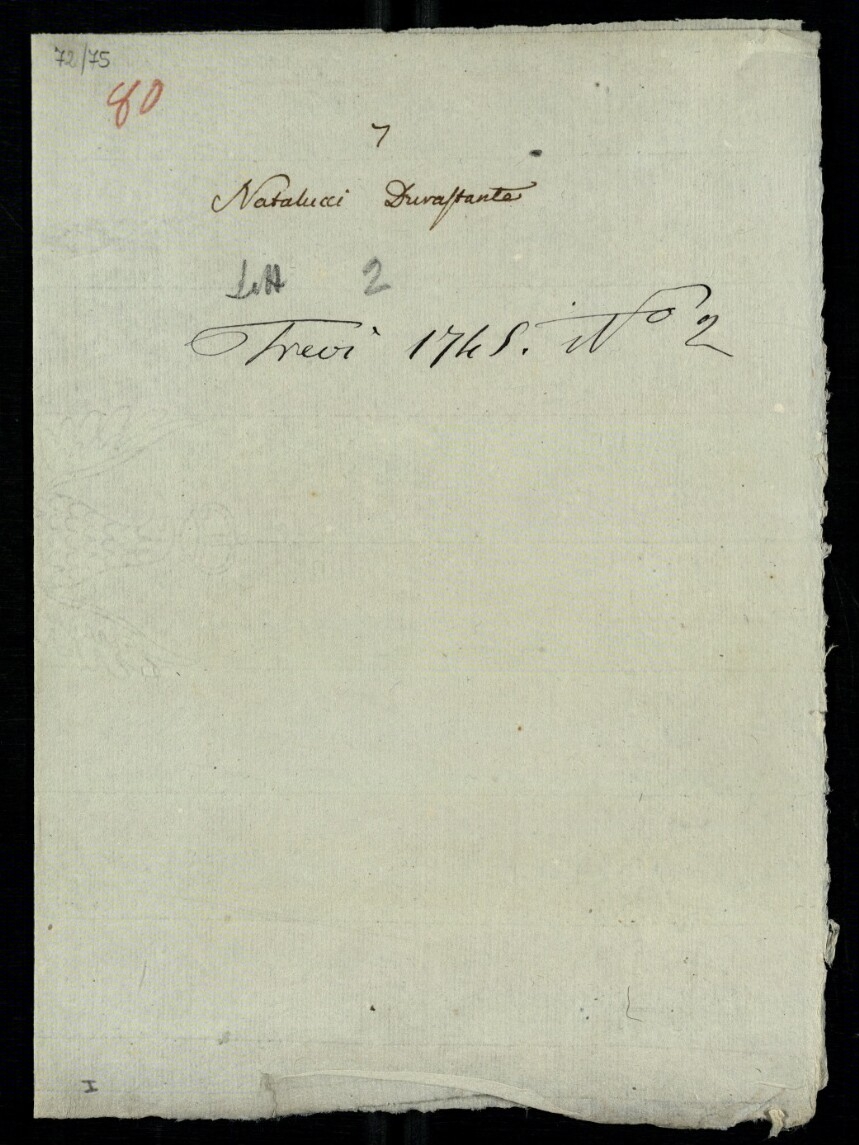 72/75
80
7
Natalucci Duraſtante
Lett 2
Trevi 1745. Nº 2
I